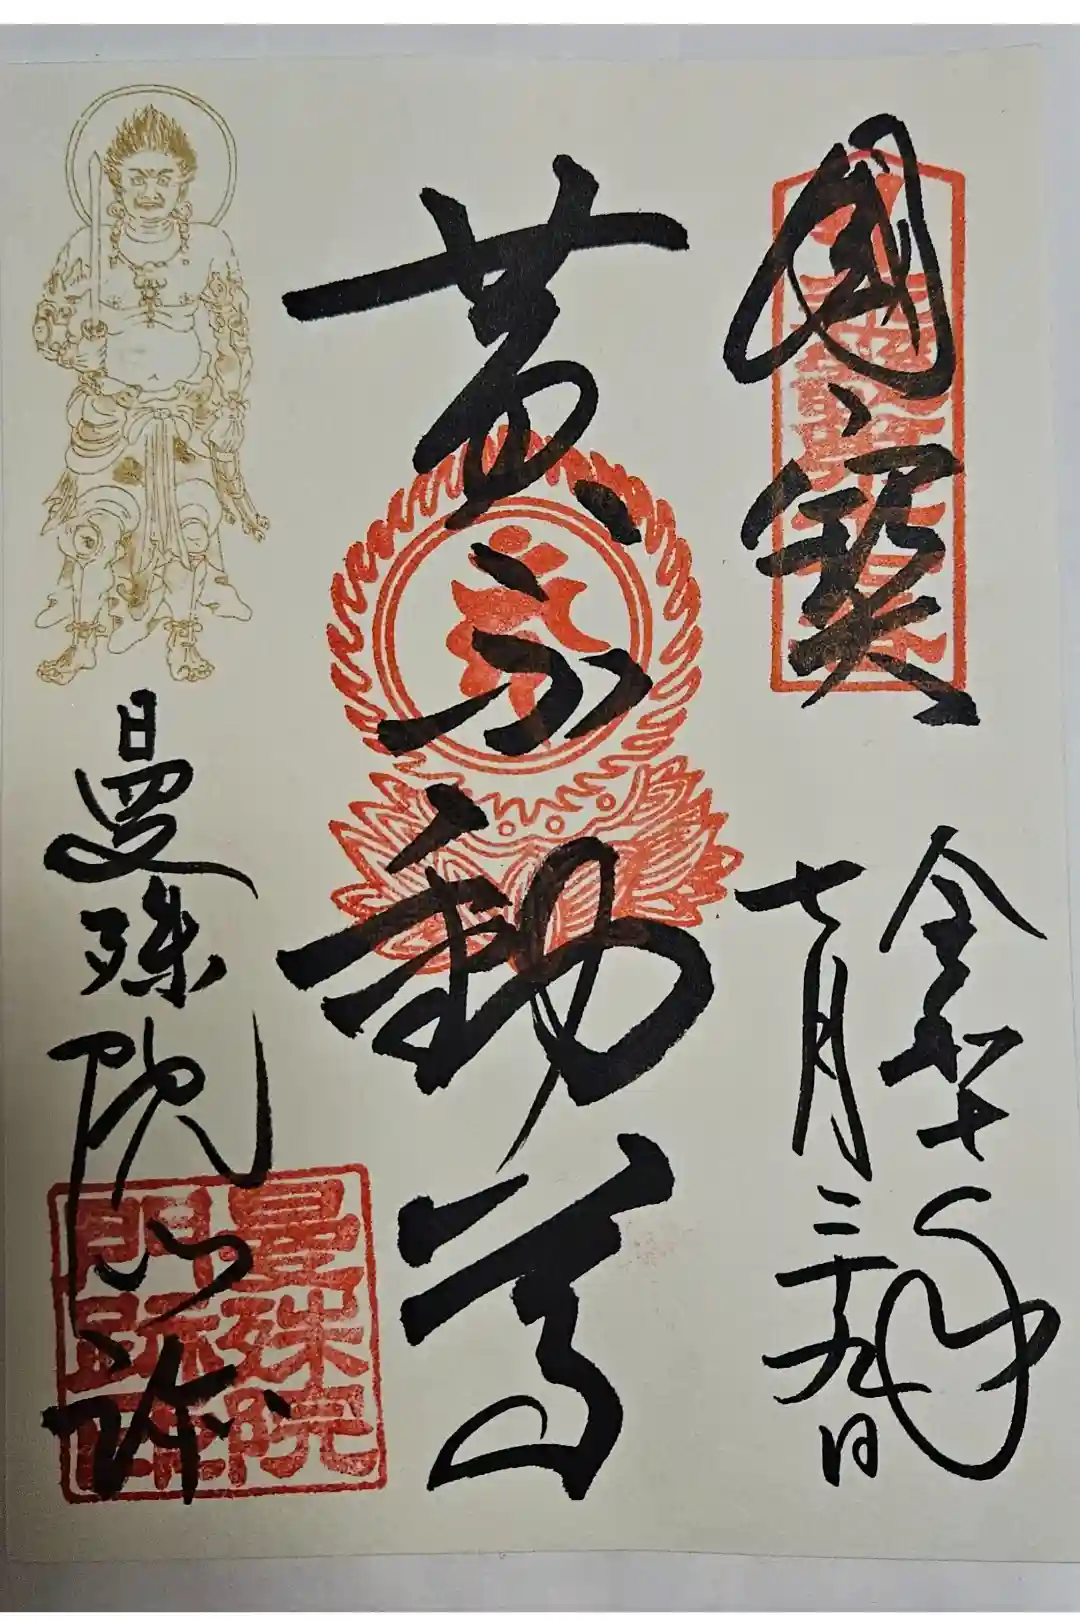 國寶
令和七年
七月二十九日
黄不動尊
曼殊院門跡
曼殊院
門跡